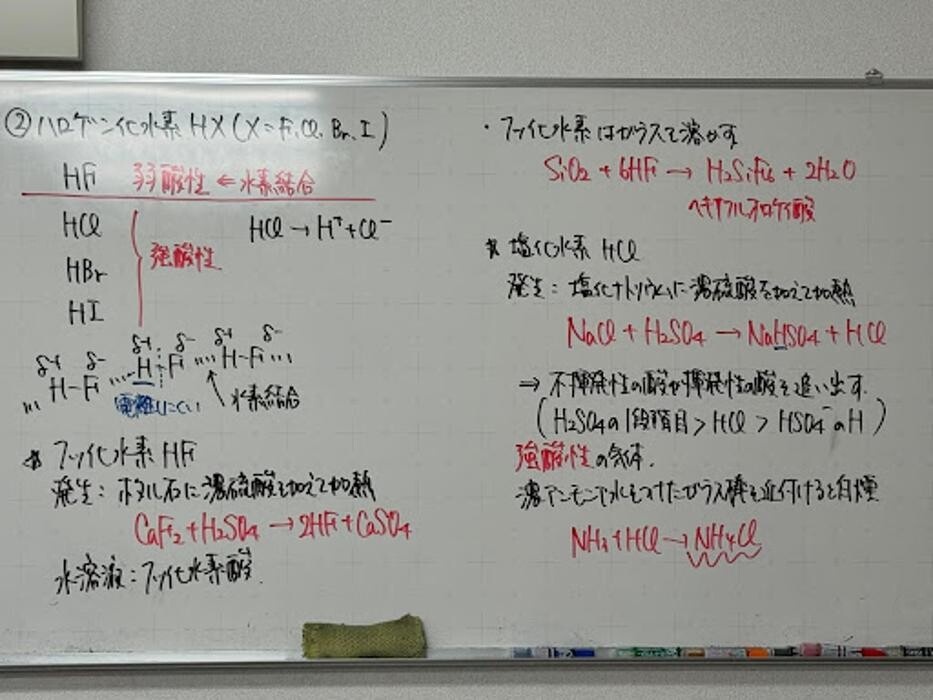 ② ハロゲン化水素 HX (X = F, Cl, Br, I)
HF 弱酸性 ← 水素結合
HCl HCl → H⁺ + Cl⁻
HBr 強酸性
HI
δ+ δ- δ+ δ- δ+ δ-
… H-F … H-F … H-F …
電離しにくい 水素結合
* フッ化水素 HF
発生: ホタル石に濃硫酸を加えて加熱
CaF₂ + H₂SO₄ → 2HF + CaSO₄
水溶液: フッ化水素酸
・フッ化水素はガラスを溶かす
SiO₂ + 6HF → H₂SiF₆ + 2H₂O
ヘキサフルオロケイ酸
* 塩化水素 HCl
発生: 塩化ナトリウムに濃硫酸を加えて加熱
NaCl + H₂SO₄ → NaHSO₄ + HCl
⇒ 不揮発性の酸が揮発性の酸を追い出す.
(H₂SO₄の1段階目 > HCl > HSO₄⁻のH)
強酸性の気体.
濃アンモニア水をつけたガラス棒を近付けると白煙
NH₃ + HCl → NH₄Cl